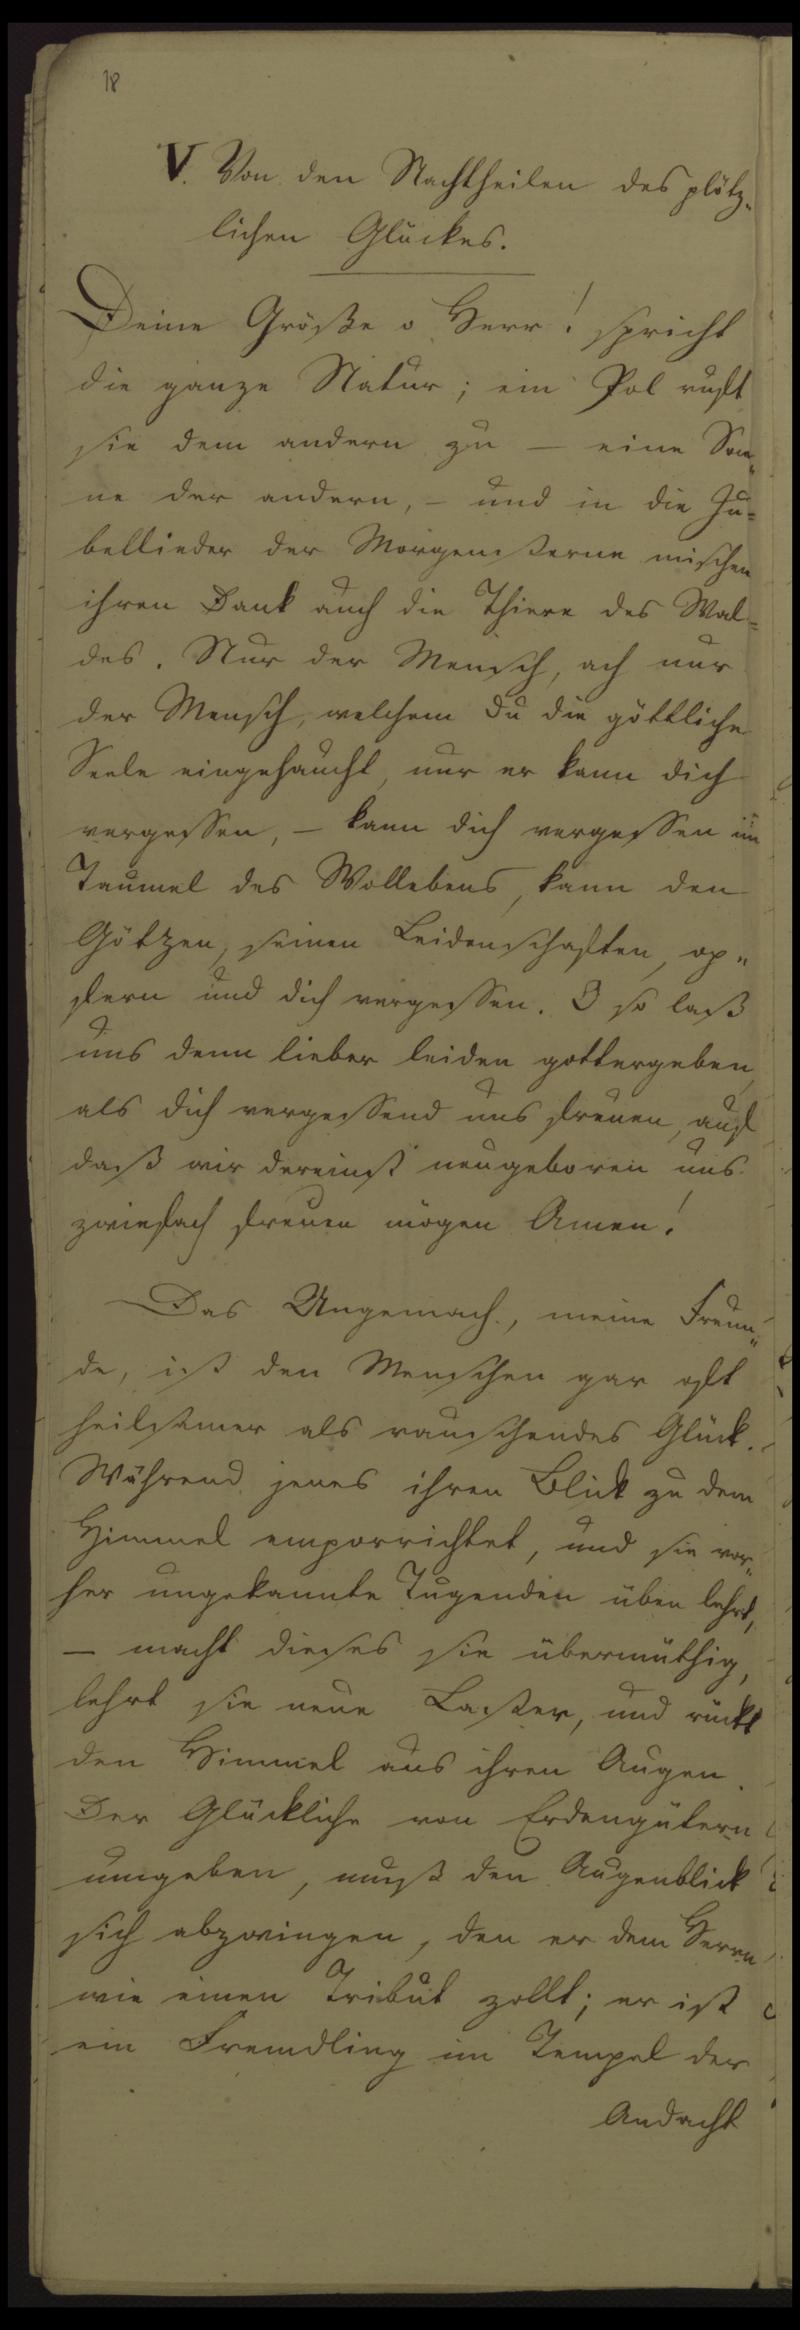 18
V. Von den Nachtheilen des plötz„
lichen Glückes.
Deine Größe o Herr! spricht
die ganze Natur; ein Pol ruft
sie dem andern zu – eine Son„
ne der andern, – und in die Ju=
bellieder der Morgensterne mischen
ihren Dank auch die Thiere des Wal=
des. Nur der Mensch, ach nur
der Mensch, welchem du die göttliche
Seele eingehaucht, nur er kann dich
vergessen, – kann dich vergessen im
Taumel des Wollebens, kann den
Götzen, seinen Leidenschaften, op„
fern und dich vergessen. O so laß
uns denn lieber leiden gottergeben,
als dich vergessend uns freuen, auf
daß wir dereinst neugeboren uns
zwiefach freuen mögen Amen!
Das Ungemach, meine Freun„
de, ist den Menschen gar oft
heilsamer als rauschendes Glück.
Während jenes ihren Blick zu dem
Himmel emporrichtet, und sie vor„
her ungekannte Tugenden üben lehrt,
– macht dieses sie übermüthig,
lehrt sie neue Laster, und rückt
den Himmel aus ihren Augen.
Der Glückliche von Erdengütern
umgeben, muß den Augenblick
sich abzwingen, den er dem Herrn
wie einen Tribut zollt; er ist
ein Fremdling im Tempel der
Andacht